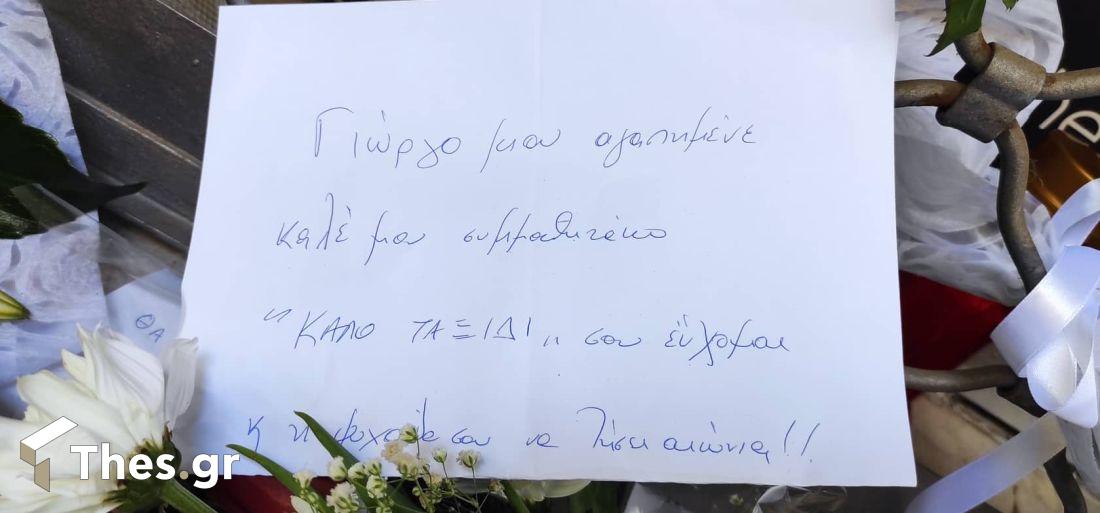 Γιώργο μου αγαπημένε
καλέ μου συμμαθητάκο
"ΚΑΛΟ ΤΑΞΙΔΙ,, σου εύχομαι
κ η ψυχούλα σου να ζήσει αιώνια!!
ΘΑ
Thes.gr